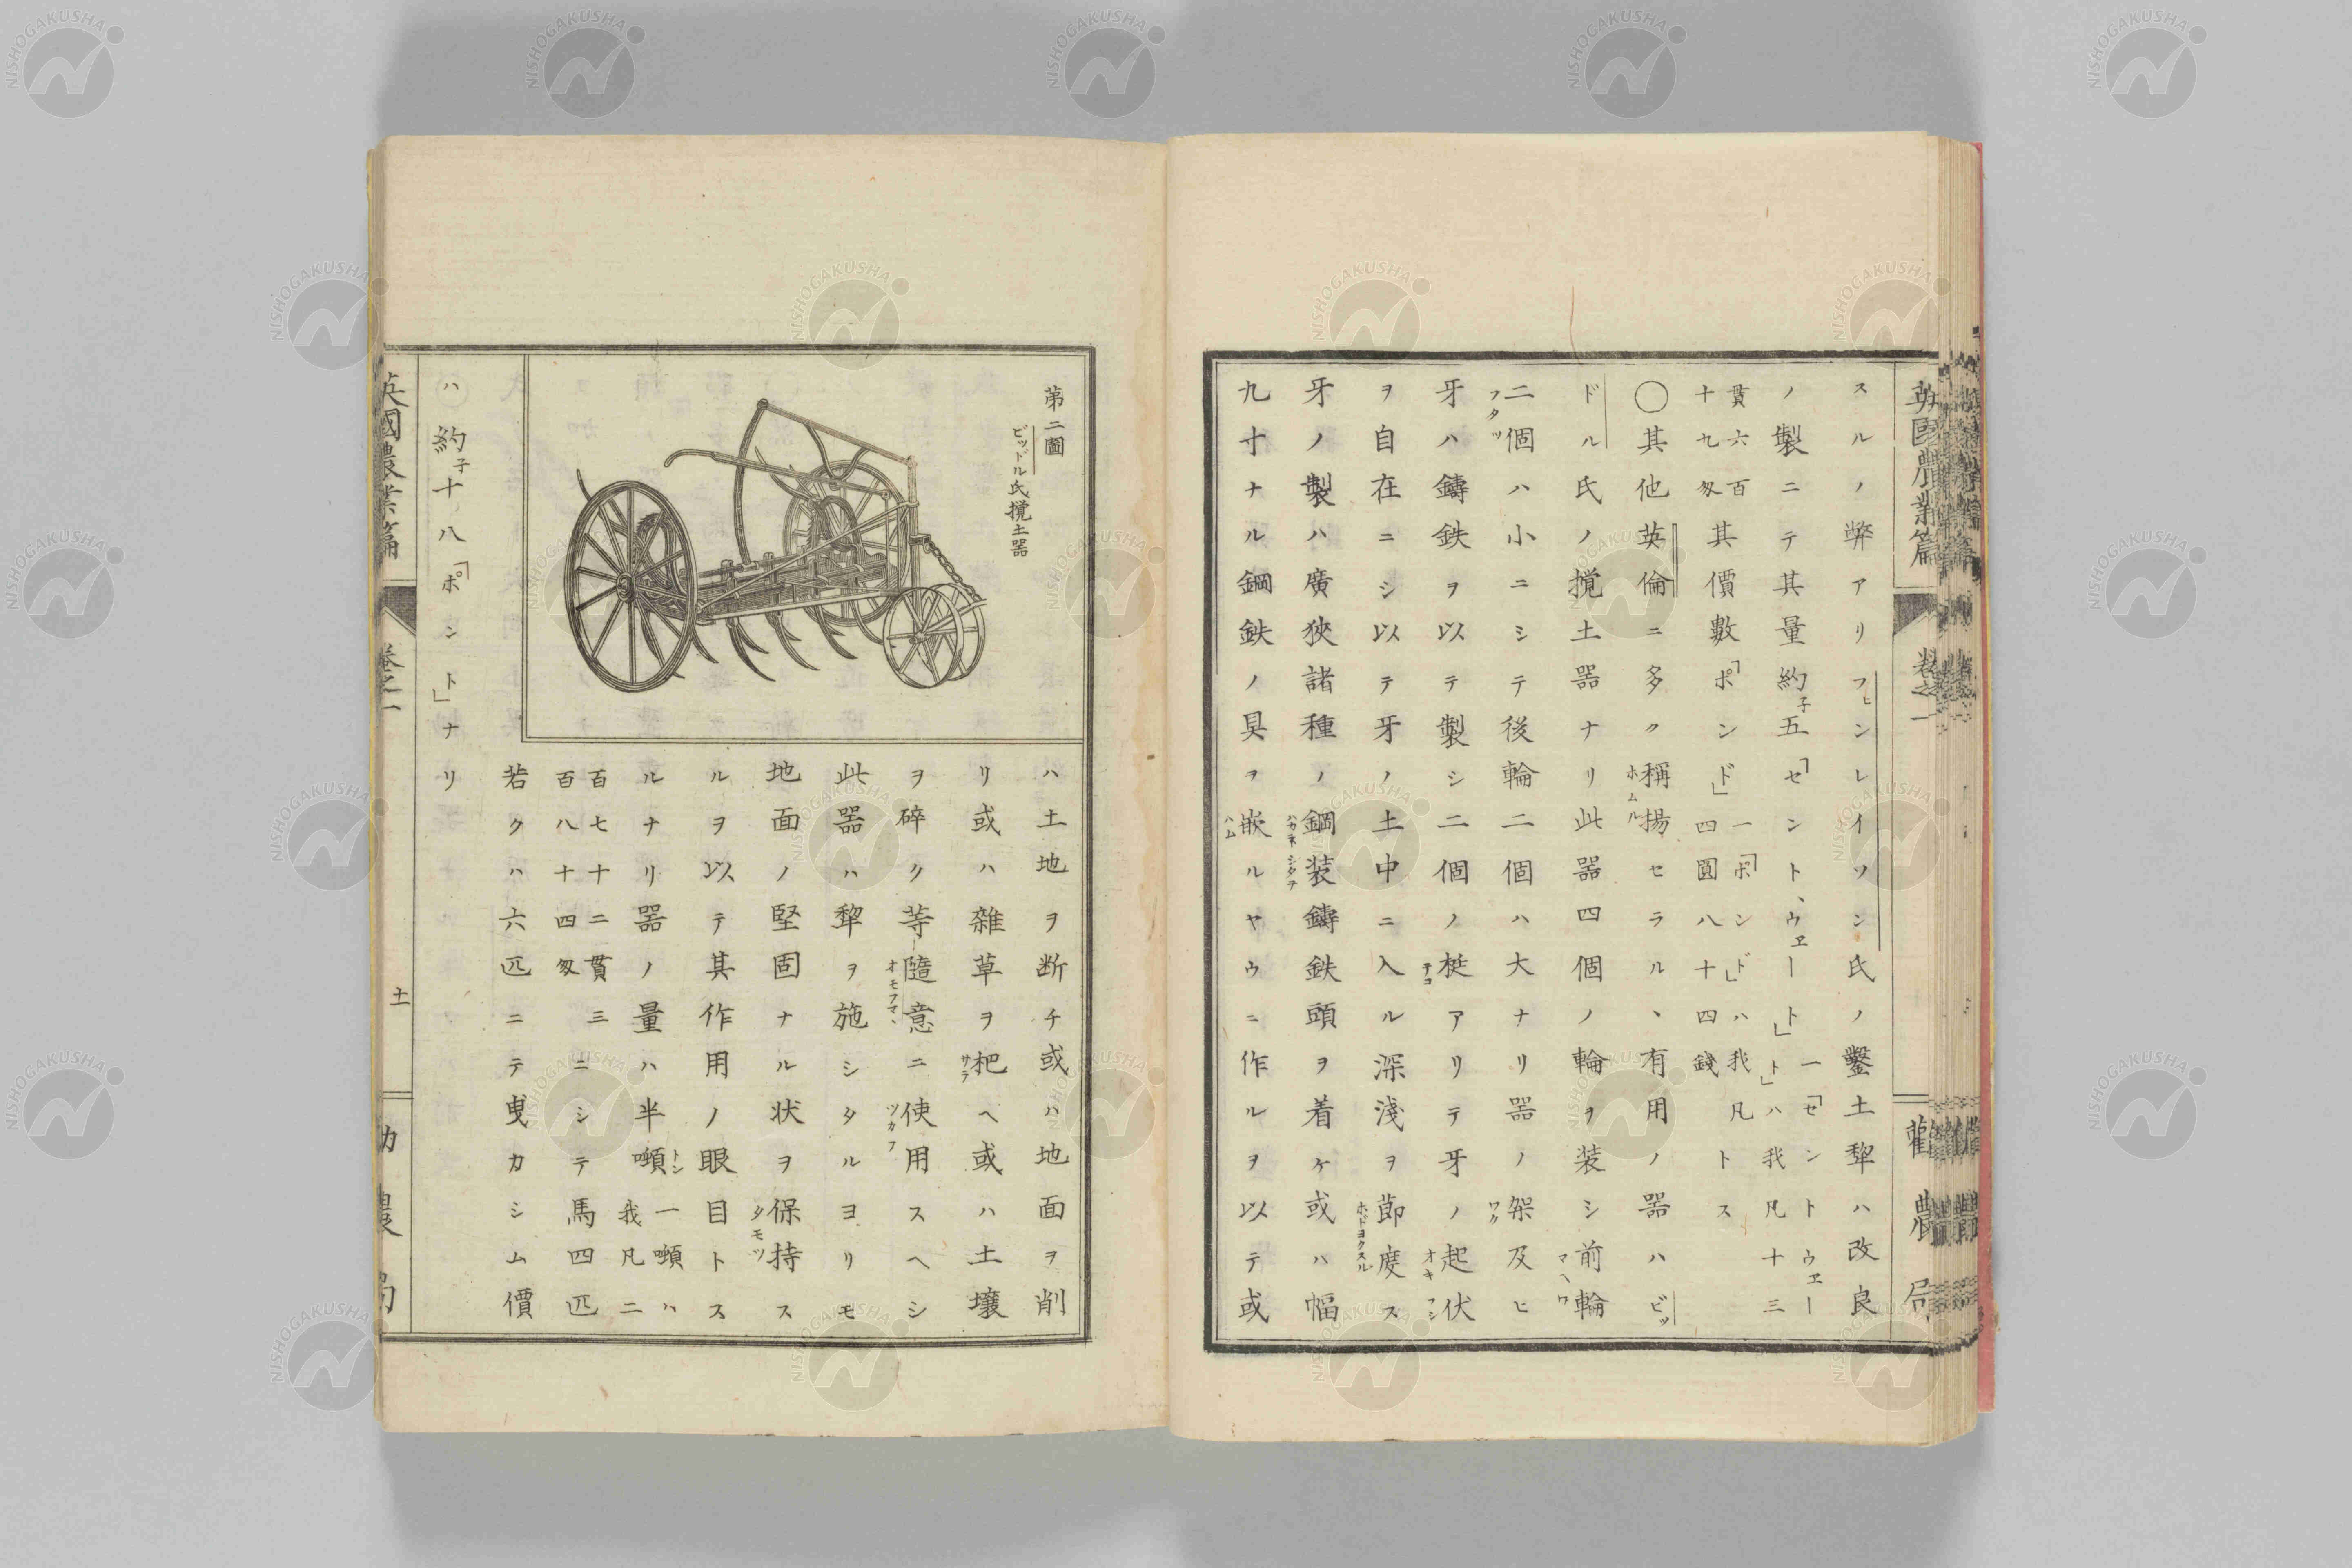 英國農業篇
卷之一
勸農局
スルノ弊アリフヒンレイソン氏ノ鑿土犂ハ改良
ノ製ニテ其量約子五「セント、ウヱート」一「セントウヱー
ト」ハ我凡十三
貫六百
十九匁其價數「ポンド」一「ポンド」ハ我凡トス
四圓八十四錢
〇其他英倫ニ多ク稱揚セラルヽ有用ノ器ハビッ
ホムル
ドル氏ノ攪土器ナリ此器四個ノ輪ヲ装シ前輪
マヘワ
二個ハ小ニシテ後輪二個ハ大ナリ器ノ架及ヒ
フタツ
ワク
牙ハ鑄鉄ヲ以テ製シ二個ノ梃アリテ牙ノ起伏
テコ
オキフシ
ヲ自在ニシ以テ牙ノ土中ニ入ル深淺ヲ節度ス
ホドヨクスル
牙ノ製ハ廣狹諸種ノ鋼装鑄鉄頭ヲ着ケ或ハ幅
ハガネシタヲ
九寸ナル鋼鉄ノ具ヲ嵌ルヤウニ作ルヲ以テ或
ハム
第二圖
ビッドル氏攪土器
ハ土地ヲ断チ或ハ地面ヲ削
リ或ハ雜草ヲ杷ヘ或ハ土壤
サラ
ヲ碎ク等隨意ニ使用スヘシ
オモフマヽ
ツカフ
此器ハ犂ヲ施シタルヨリモ
地面ノ堅固ナル状ヲ保持ス
タモツ
ルヲ以テ其作用ノ眼目トス
ルナリ器ノ量ハ半噸一噸ハ
トン
我凡二
百七十二貫三
百八十四匁ニシテ馬四匹
若クハ六匹ニテ曳カシム價
ハ約子十八「ポント」ナリ
英國農業篇
卷之一
土
勸農局